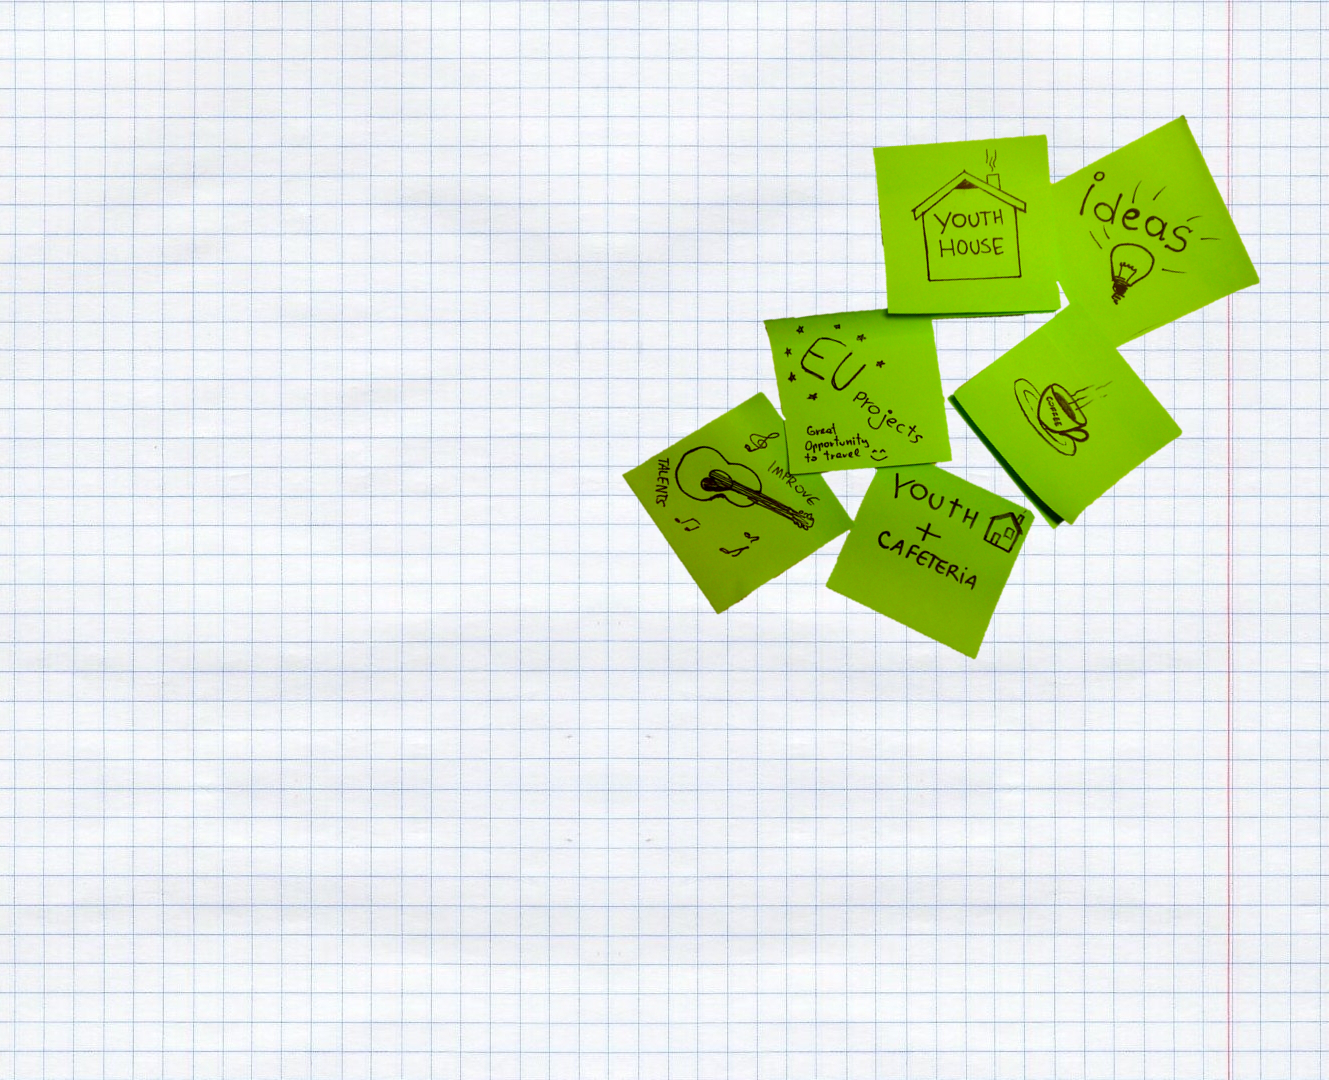 YOUTH
HOUSE
ideas
EU
projects
Great
Opportunity
to travel
COFFEE
IMPROVE
TALENTS
YOUTH
+
CAFETERiA